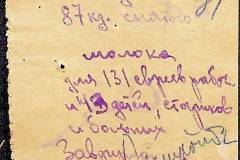 87 кг. снятого
молока
для 131 евреев рабоч
и 43 детей, стариков
и больных